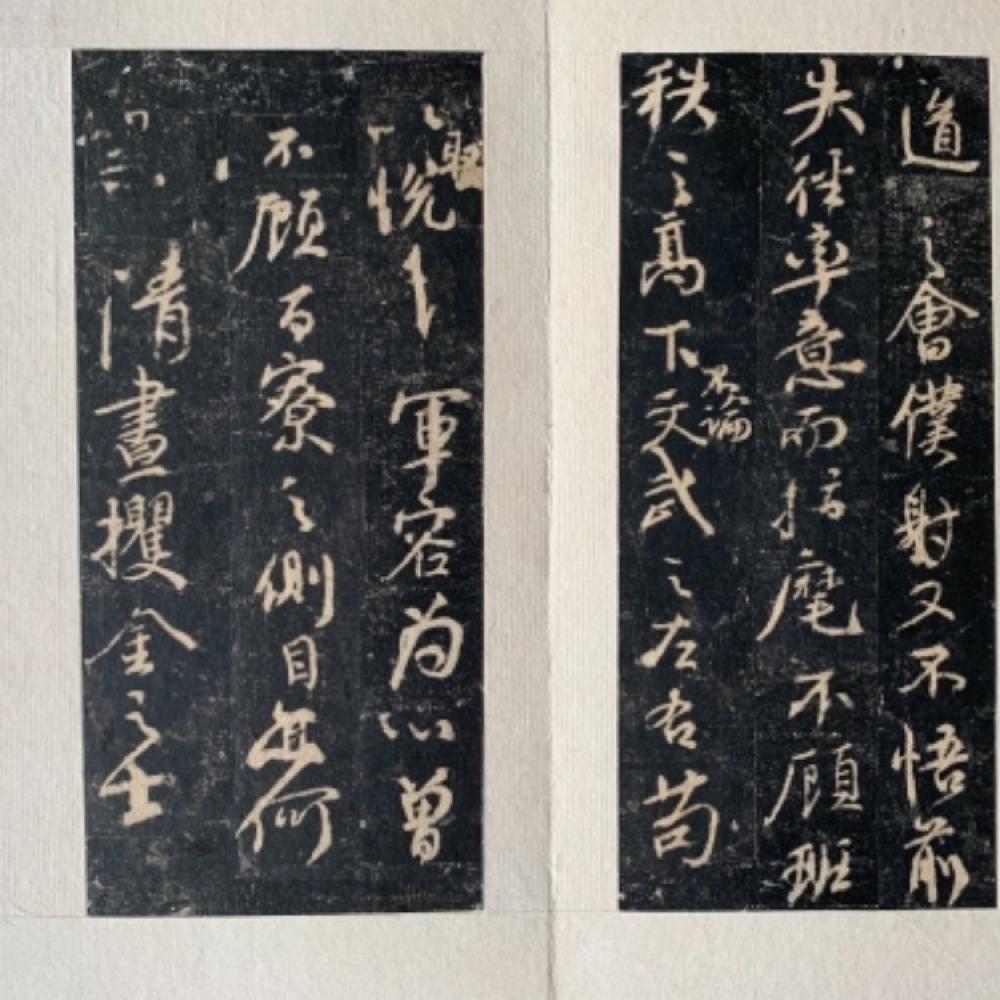 道之會僕射又不悟前
失徑率意而指麾不顧班
秩之高下不論文武之左右苟
取悅軍容為心曾
不顧百寮之側目亦何
清晝攫金之士